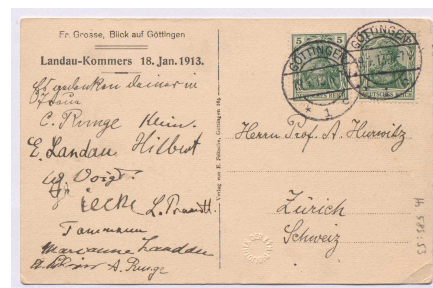 Fr. Grosse, Blick auf Göttingen
Landau-Kommers 18. Jan. 1913.
Es gedenken deiner in
C. Runge Klein.
E. Landau Hilbert
W. Voigt.
Hecke L. Prandtl.
Tammann
Marianne Landau
A. Runge
Verlag von
Göttingen
GÖTTINGEN
5 5
DEUTSCHES REICH
GÖTTINGEN
* 1 c
Herrn Prof. A. Hurwitz
Zürich
Schweiz